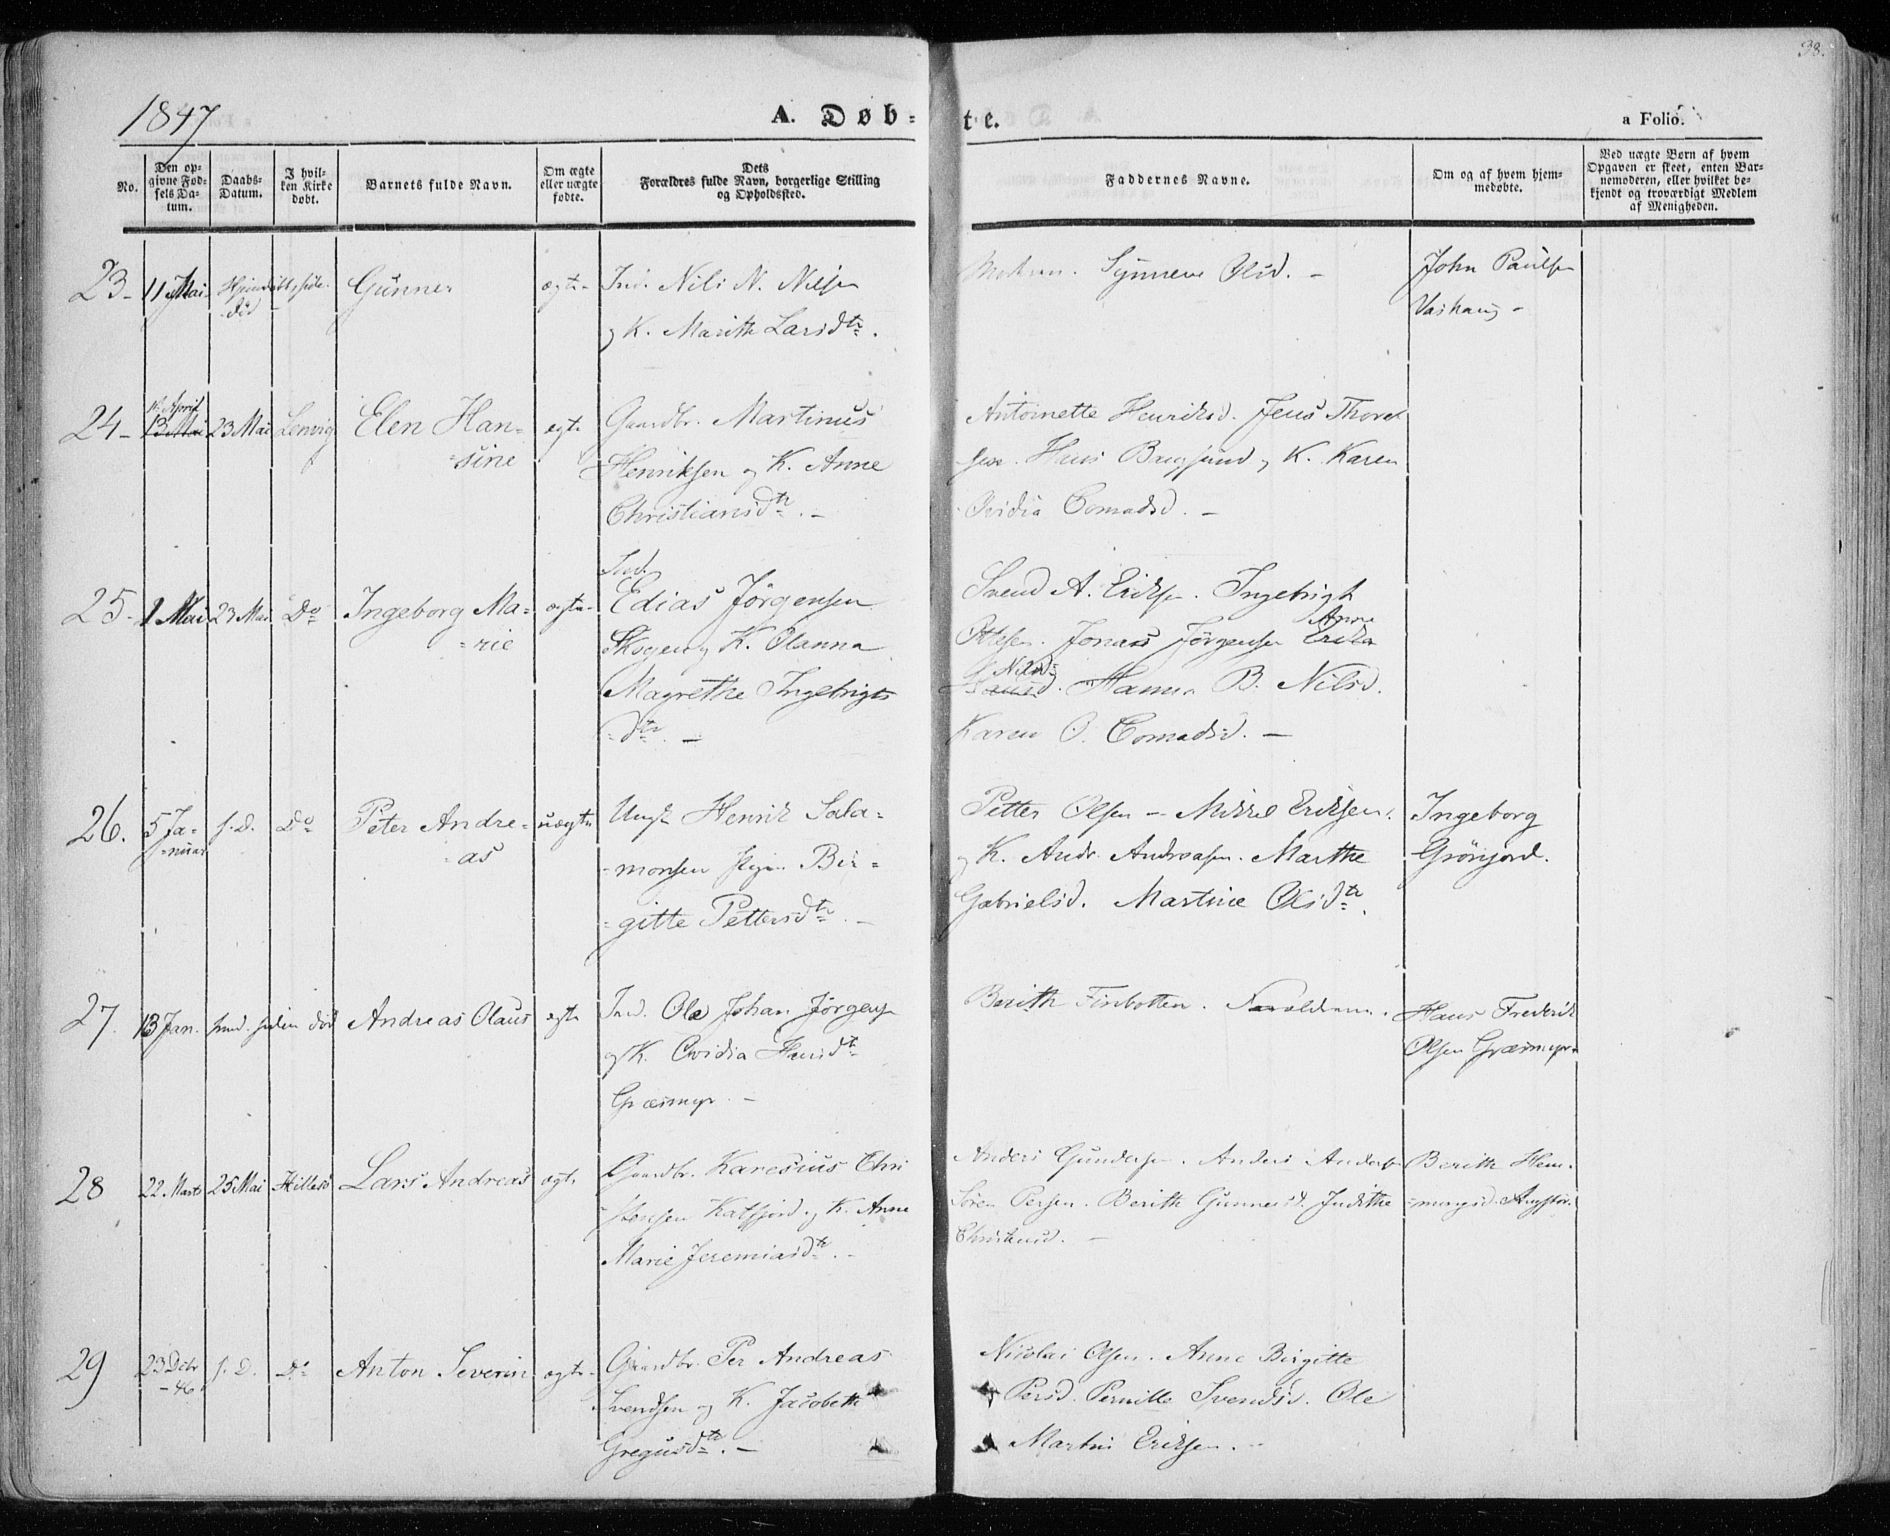 38.
1847
A. Døb-
te.
a Folio.
No.
Den op-
givne Fød-
sels Da-
tum.
Daabs-
Datum.
I hvil-
ken Kirke
døbt.
Barnets fulde Navn.
Om ægte
eller uægte
fødte.
Dets
Forældres fulde Navn, borgerlige Stilling
og Opholdssted.
Faddernes Navne.
Om og af hvem hjem-
medøbte.
Ved uægte Børn af hvem
Opgaven er skeet, enten Bar-
nemoderen, eller hvilket be-
kjendt og troværdigt Medlem
af Menigheden.
23- 11 Mai
død
Gunner
ægte-
Ind. Nils N. Nilsen
og K. Marith Larsdtr.
Synneve Olsd. -
John Paulsen
24-
April
13 Mai 23 Mai Lenvig
Elen Han-
-sine
egte
Gaardbr. Martinus
Henriksen og K. Anne
Christiansdtr. -
Antoinette Henriksd. Jens Thorel
sen. Hans og K. Karen
Ovidia Conradsd. -
25- 1 Mai 23 Mai Do
Ingeborg Ma-
-rie
ægte-
Ind.
Edias Jørgensen
Skogen og K. Olanna
Magrethe Ingebrigts
-dtr. -
Svend A. Eriksen. Ingebrigt
Anne
Ottesen. Jonas Jørgensen Erika
Nilsd.
Hansd. Hanna B. Nilsd.
Karen O. Conradsd. -
26. 5 Ja-
-nuar
s. D. Do
Peter Andre-
-as
uægte
Ungk. Henrik Sala-
-monsen Pige Bir-
-gitte Pettersdtr. -
Petter Olsen - Mikkel Eriksen.
og K. Andr. Andreasen. Marthe
Gabrielsd. Martine Olsdtr.
Ingeborg
Grønjord.
27. 13 Jan. siden død
Andreas Olaus
egte
Ind. Ole Johan Jørgens
og K. Ovidia Hansdt
Græsmyr. -
Berith Finbotten. Forældrene.
Hans Frederik
Olsen Græsmyr
28 22 Marts 25 Mai Hillesø
Lars Andreas
egte
Gaardbr. Karesius Chri
stensen Katfjord og K. Anne
Marie Jeremiasdtr. -
Anders Gundersen. Anders Anders
Søren Persen. Berith Gunnersd. Judithe
Christensd. -
Berith Hem-
-mingsd.
29 23 Debr
-46
s. D. Do
Anton Severin
ægte-
Gaardbr. Per Andreas
Svendsen og K. Jacobeth
Gregusdtr. -
Nicolai Olsen. Anne Birgitte
Persd. Pernille Svendsd. Ole
Martin Eriksen. -